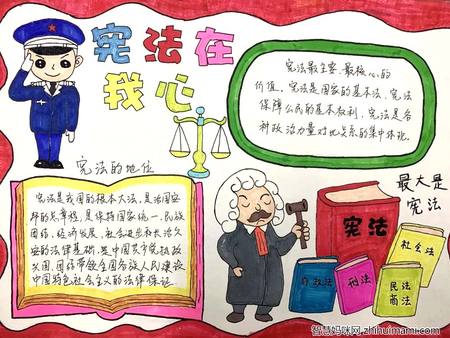 宪法在
我心
宪法最主要、最核心的
价值,宪法是国家的基本法,宪法
保障公民的基本权利,宪法是各
种政治力量对比关系的集中体现。
宪法的地位
宪法是我国的根本大法,是治国安
邦的总章程,是保持国家统一、民族
团结、经济发展、社会进步和长治久
安的法律基础,是中国共产党执政
兴国、团结带领全国各族人民建设
中国特色社会主义的法律保证。
最大是
宪法
宪法
社会法
行政法
刑法
民法
商法
智慧妈咪网 zhihuimami.com